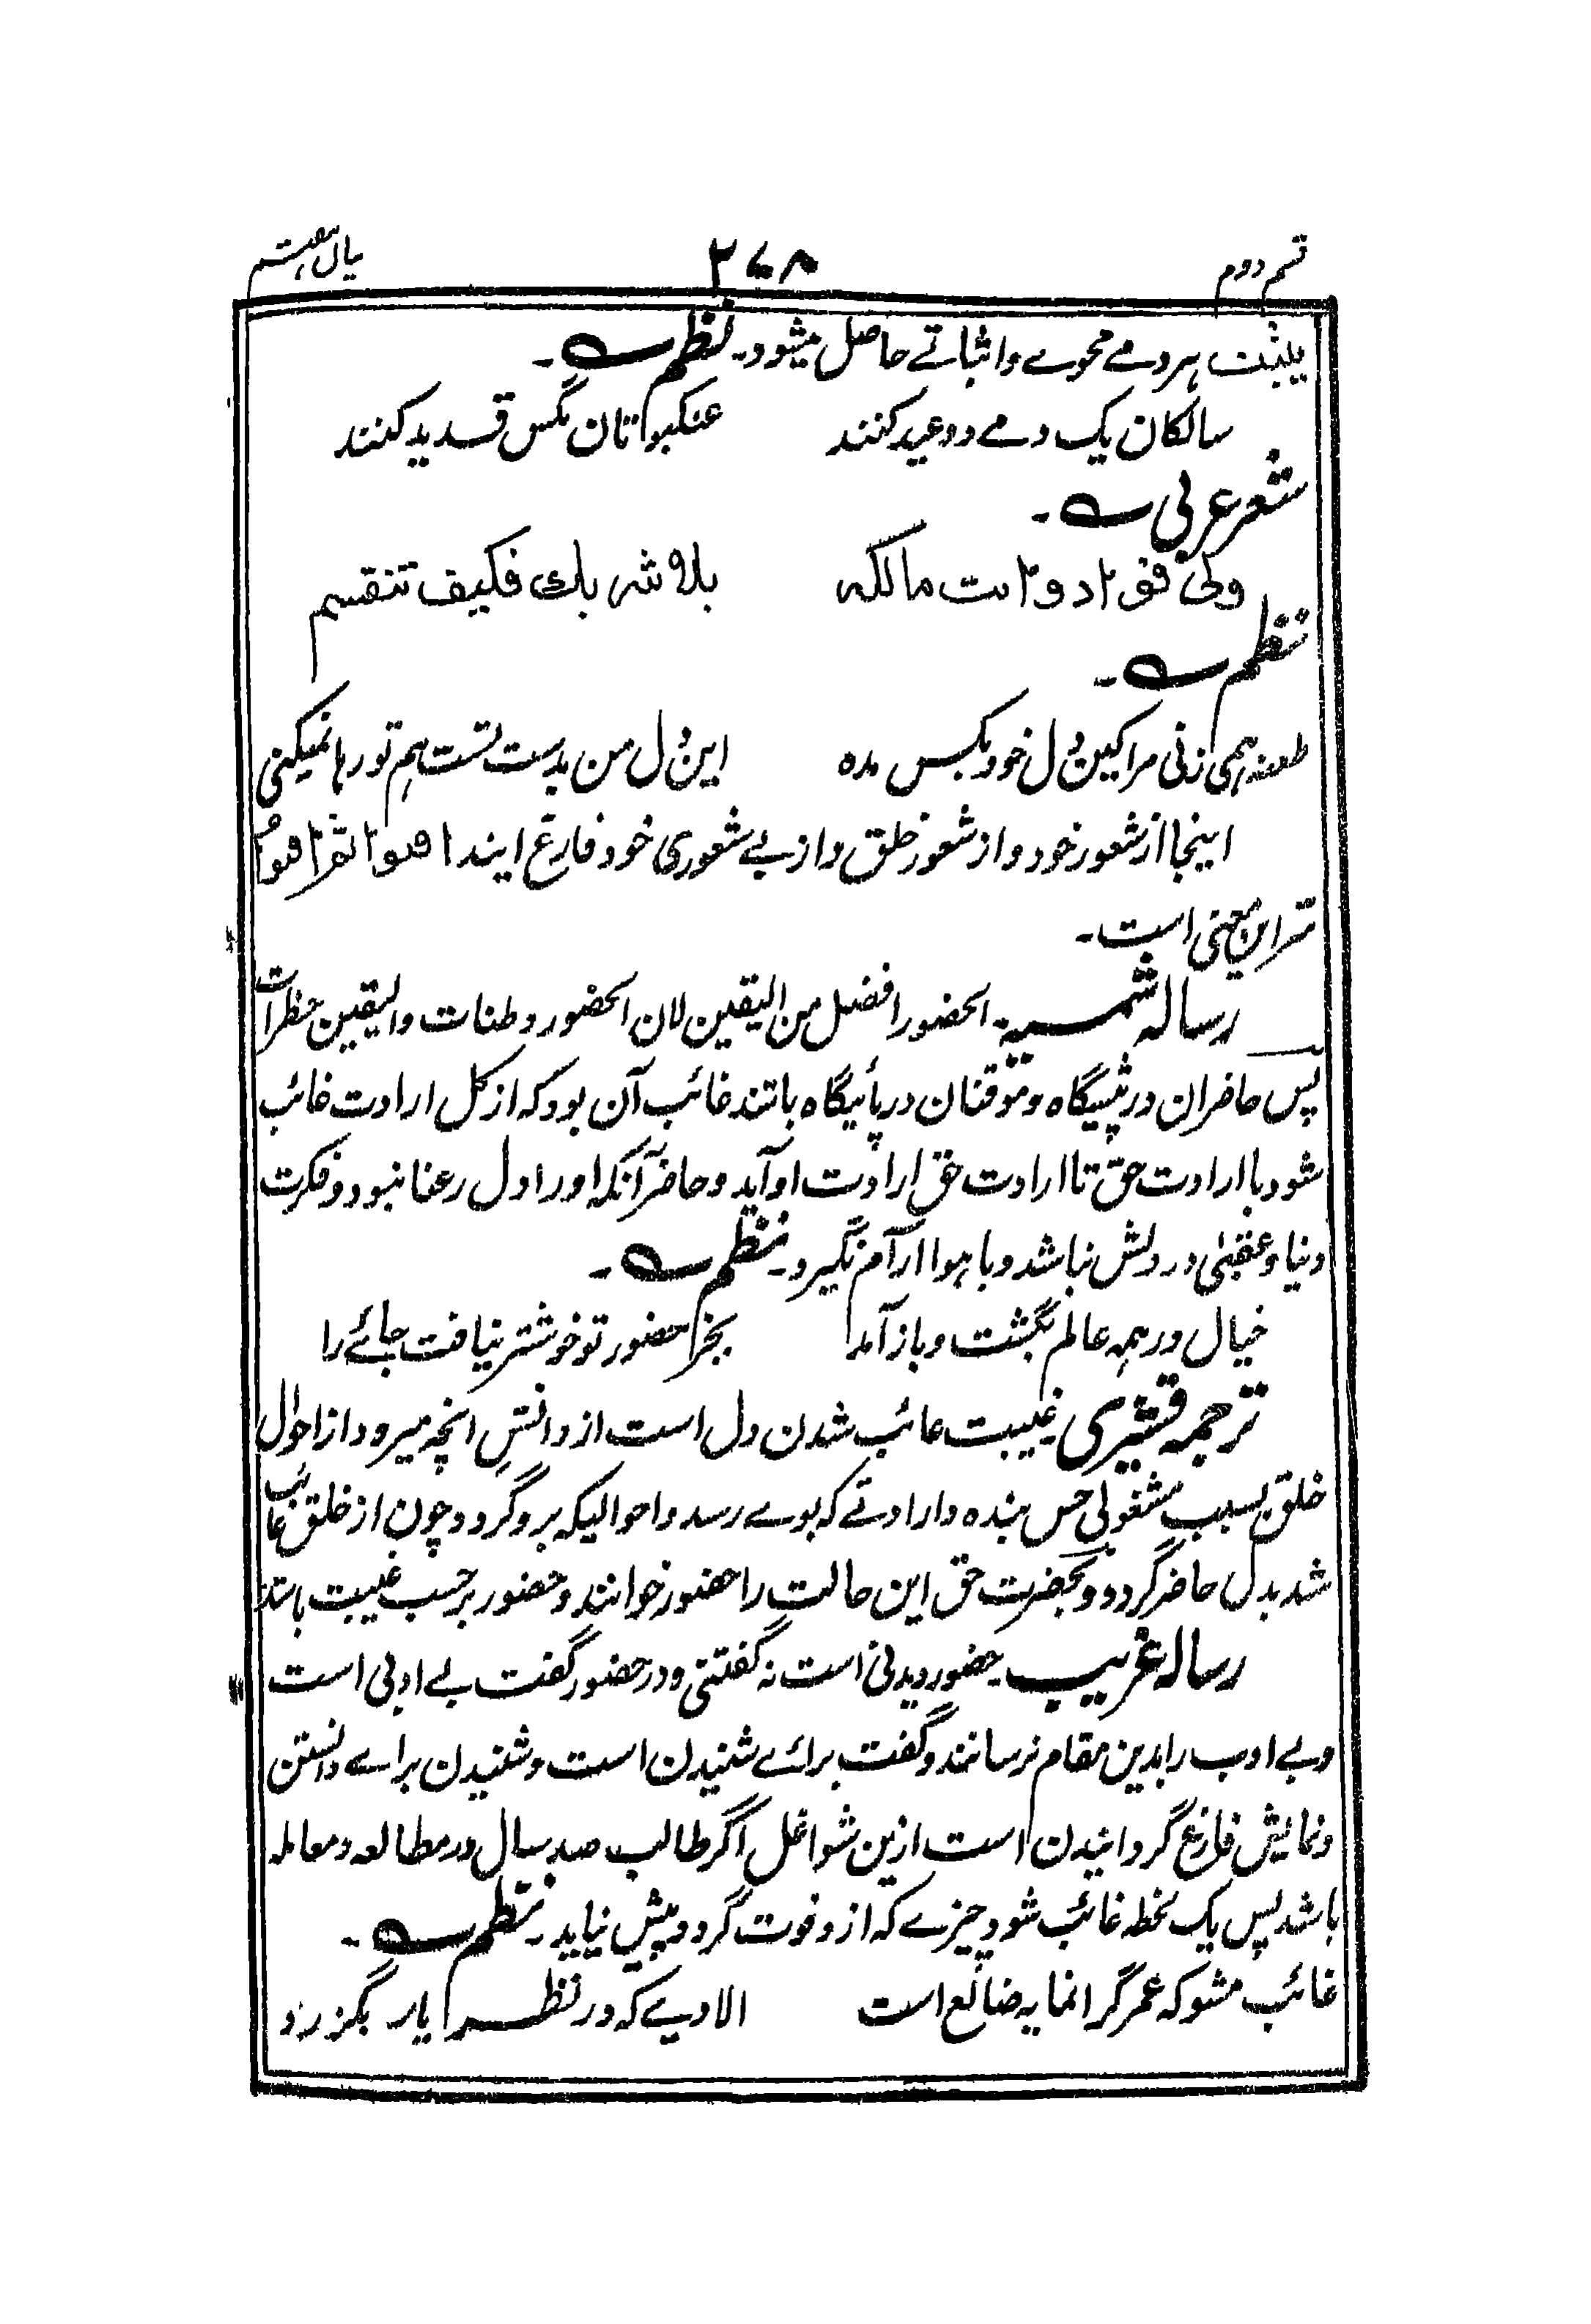 قسم دوم ۲۷۸ بیال هفتم
یثبت هر دمے محوے و اثباتے حاصل میشود۔ نظم ے۔
سالکان یک دمے دو عید کنند عنکبوتان مگس قدید کنند
شعر عربی ے۔
ولی فؤاد وانت مالکه بلا شریك فکیف تنقسم
نظم ے۔
طعنه همی زنی مرا کین دل خود بکس مده این دل من بدست تست هم تو رها نمیکنی
اینجا از شعور خود و از شعور خلق و از بے شعوری خود فارغ ایند افنوا ثم افنوا
سر این معنی است۔
رساله شمسیه۔ الحضور افضل من الیقین لان الحضور وطنات والیقین خطرات
پس حاضران در پیشگاه و موقنان در پائیگاه باشند غائب آن بود که از کل ارادت غائب
شود با ارادت حق تا ارادت حق ارادت او آید و حاضر آنکه او را دل رعنا نبود و فکرت
دنیا و عقبیٰ در دلش نباشد و با هوا آرام نگیرد۔ نظم ے۔
خیال در همه عالم بگشت و باز آمد بجز حضور تو خوشتر نیافت جائے را
ترجمه قشیری غیبت غائب شدن دل است از دانش انچه میرود از احوال
خلق بسبب مشغولی حس بنده و ارادتے که بوے رسد و احوالیکه برو گردد چون از خلق غائب
شد بدل حاضر گردد و بحضرت حق این حالت را حضور خوانند و حضور برحسب غیبت باشد
رساله غریب۔ حضور دیدنی است نه گفتنی و در حضور گفت بے ادبی است
و بے ادب را بدین مقام نرسانند و گفت برائے شنیدن است و شنیدن براے دانستن
و نمایش فارغ گردانیدن است ازین شواغل اگر طالب صد سال در مطالعه و معامله
باشد پس یک لحظه غائب شود چیزے که ازو فوت گردد پیش نیاید۔ نظم ے۔
غائب مشو که عمر گرانمایه ضائع است الا دمے که در نظر یار بگزرد